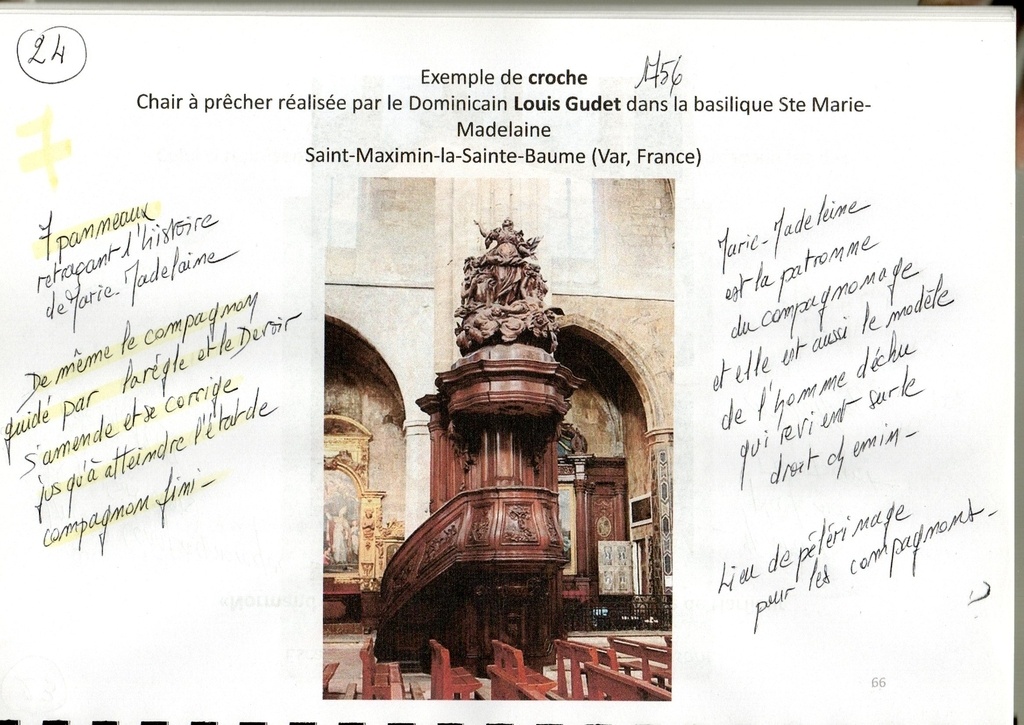 24
Exemple de croche 1756
Chair à prêcher réalisée par le Dominicain Louis Gudet dans la basilique Ste Marie-
Madelaine
Saint-Maximin-la-Sainte-Baume (Var, France)
7
7 panneaux
retraçant l'histoire
de Marie-Madelaine
De même le compagnon
guidé par la régle et le Devoir
s'amende et se corrige
jusqu'à atteindre l'étarde
compagnon fini -
Marie-Madeleine
est la patronne
du compagnonage
et elle est aussi le modèle
de l'homme déchu
qui revient sur le
droit chemin -
Lieu de pélérinage
pour les compagnons -
66